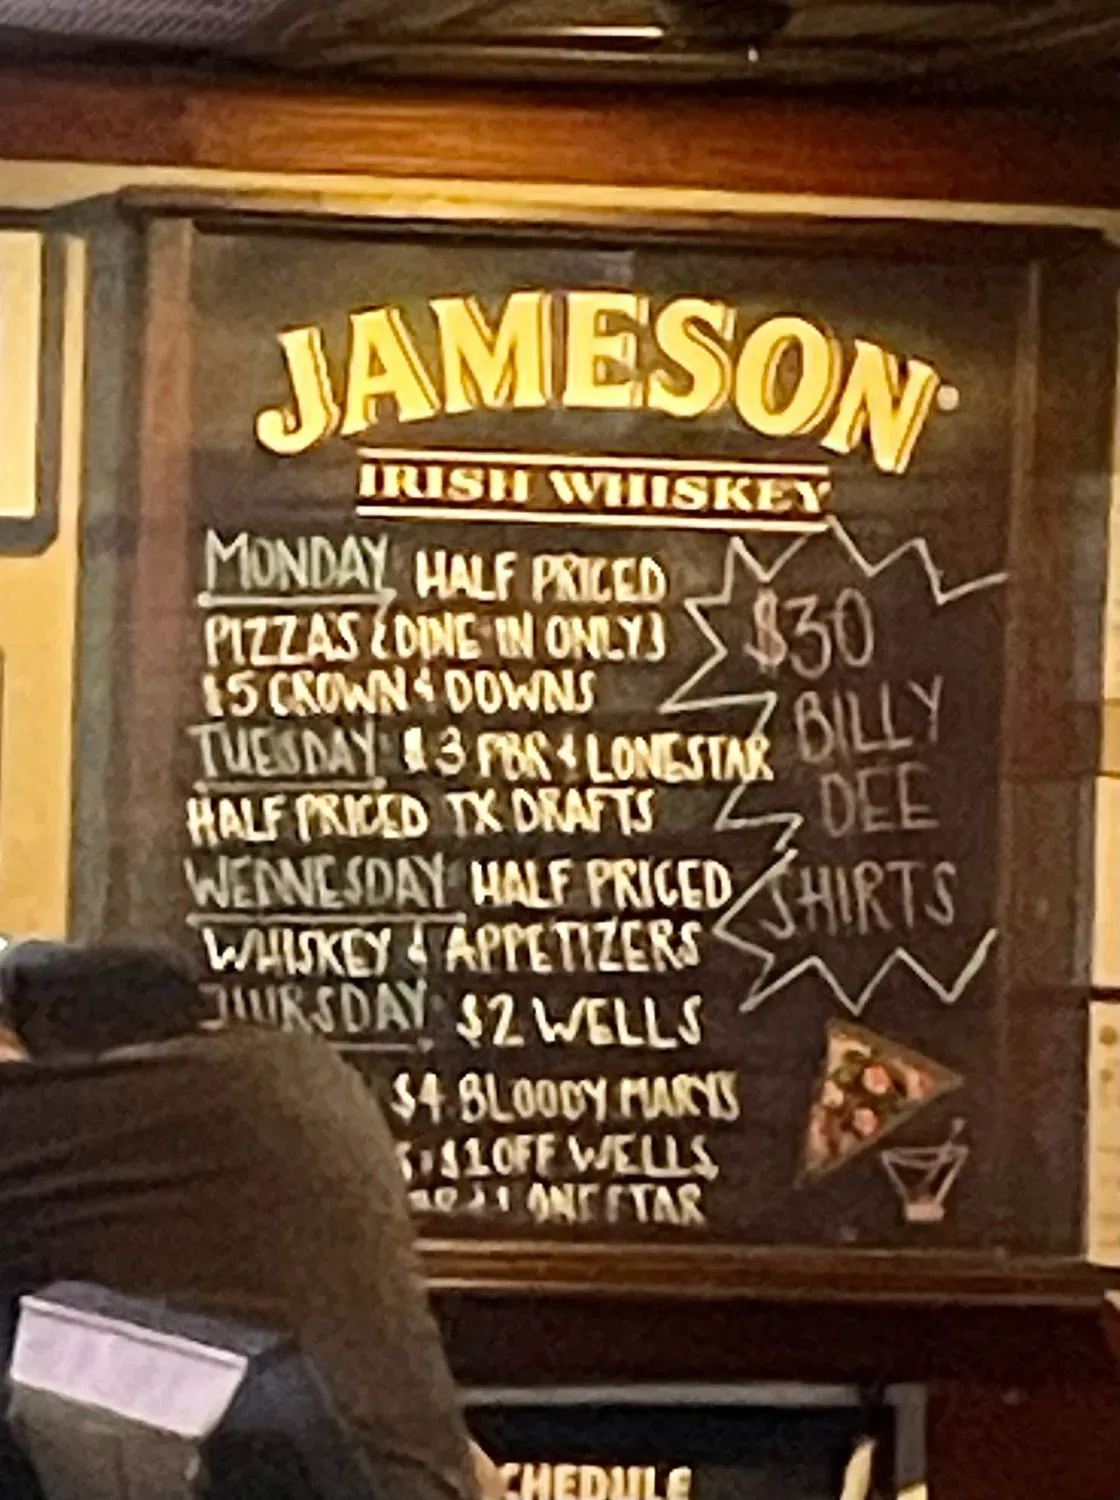 JAMESON
IRISH WHISKEY
MONDAY HALF PRICED
PIZZA'S (DINE IN ONLY)
$5 CROWN & DOWNS
TUESDAY $3 PBR & LONESTAR
HALF PRICED TX DRAFTS
WEDNESDAY HALF PRICED
WHISKEY & APPETIZERS
THURSDAY $2 WELLS
$4 BLOODY MARYS
$1 OFF WELLS
LONESTAR
$30
BILLY
DEE
SHIRTS